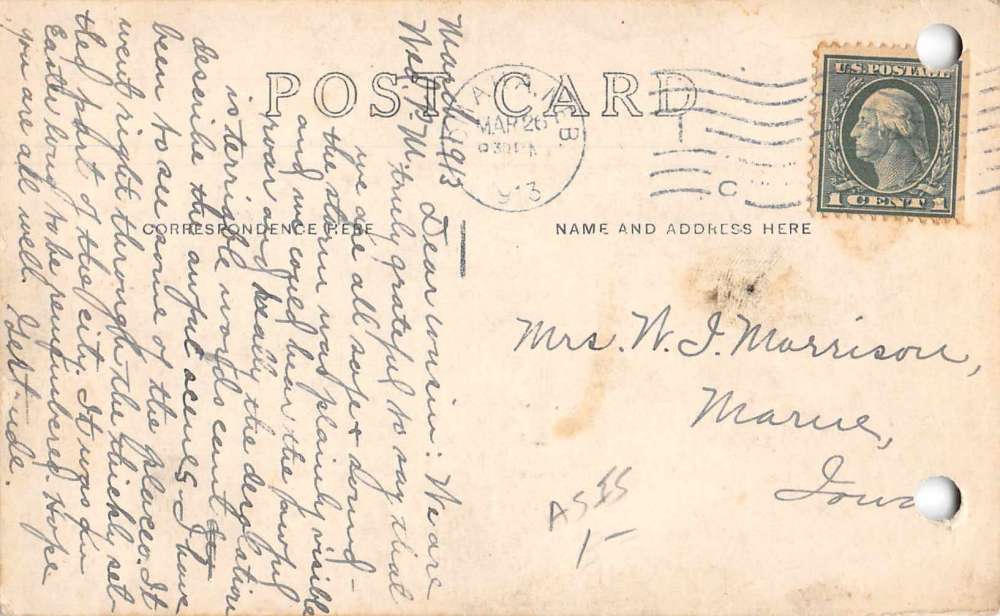 POST CARD
MAR 26
930 PM
1913
U.S. POSTAGE
1 CENT 1
CORRESPONDENCE HERE
NAME AND ADDRESS HERE
March 1913
Wed. P.M. Dear Cousin: We are
truly grateful to say that
we are all safe & sound –
the storm was plainly visible
and we could hear the awful
roar and really the desolation
is terrible words cannt
describe the awful scenes I have
been to see some of the places. It
went right through the thickly set-
tled part of the city. It was an
Easter long to be remembered. Hope
you are all well. Gertrude.
Mrs. W. J. Morrison,
Marne,
Iowa
AS IS
1–